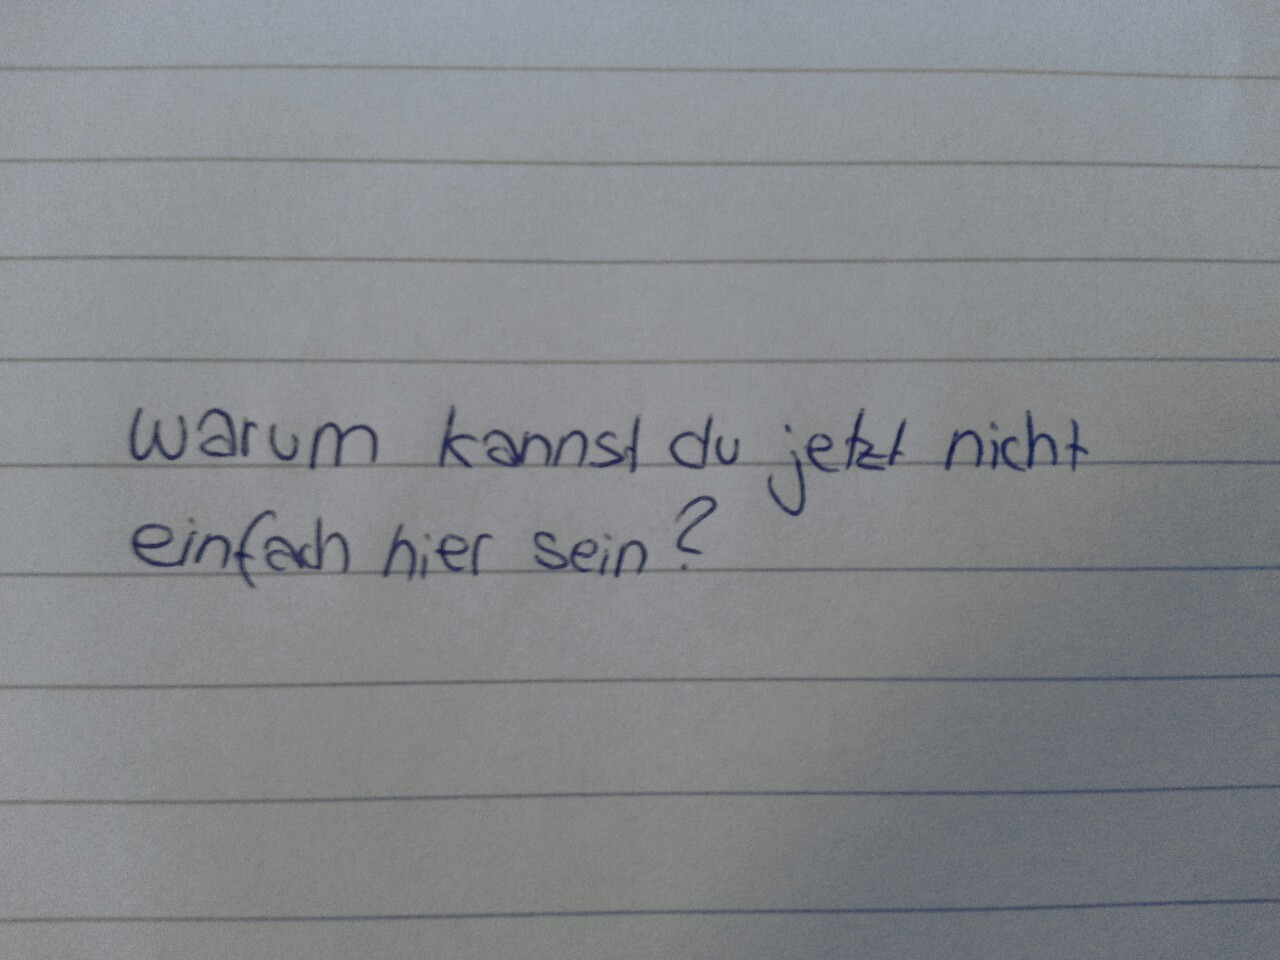 warum kannst du jetzt nicht
einfach hier sein?